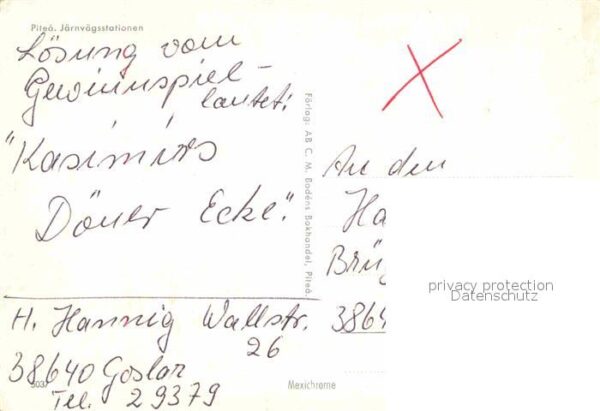 Piteå. Järnvägsstationen
Lösung vom
Gewinnspiel-
lautet:
"Kasimirs
Döner Ecke".
H. Hannig Wallstr.
26
38640 Goslar
Tel. 29379
5037
Mexichrome
Förlag: AB C. M. Bodéns Bokhandel, Piteå
An den
Ha
Brüg
3864
privacy protection
Datenschutz